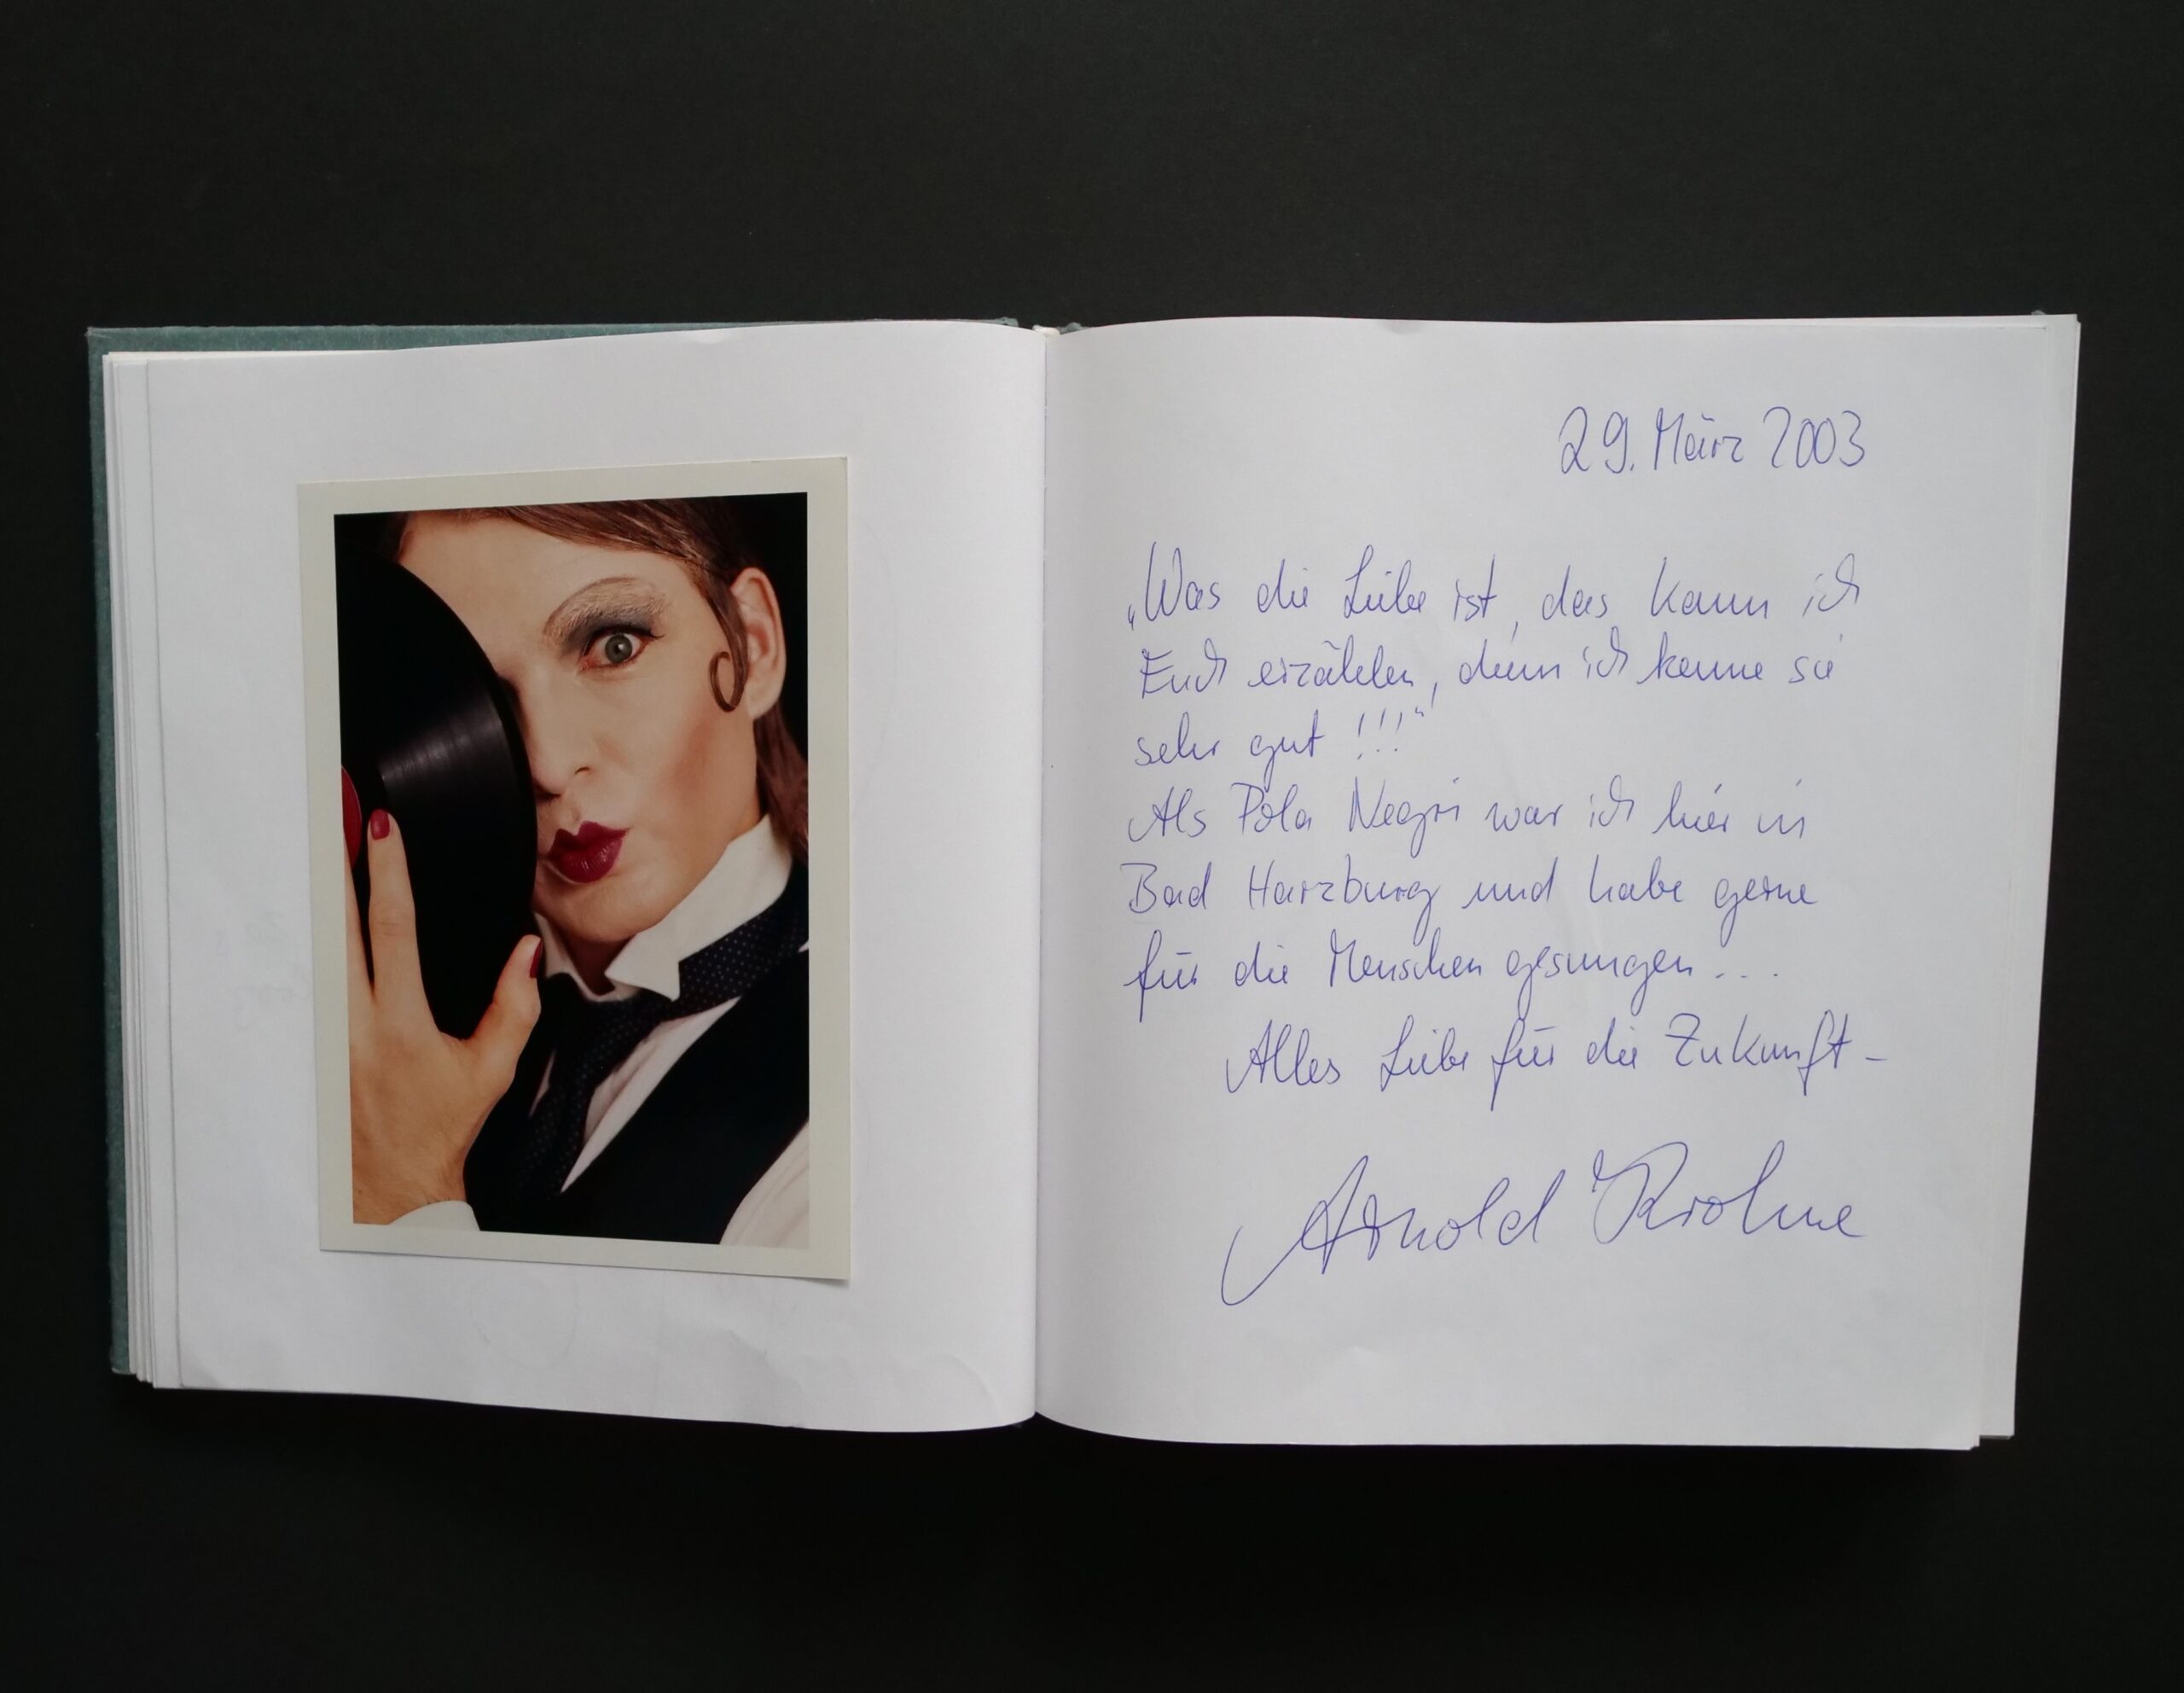 29. März 2003
„Was die Liebe ist, das kann ich
Euch erzählen, denn ich kenne sie
sehr gut !!!“
Als Pola Negri war ich hier in
Bad Harzburg und habe gerne
für die Menschen gesungen...
Alles Liebe für die Zukunft –
Arnold Krohne